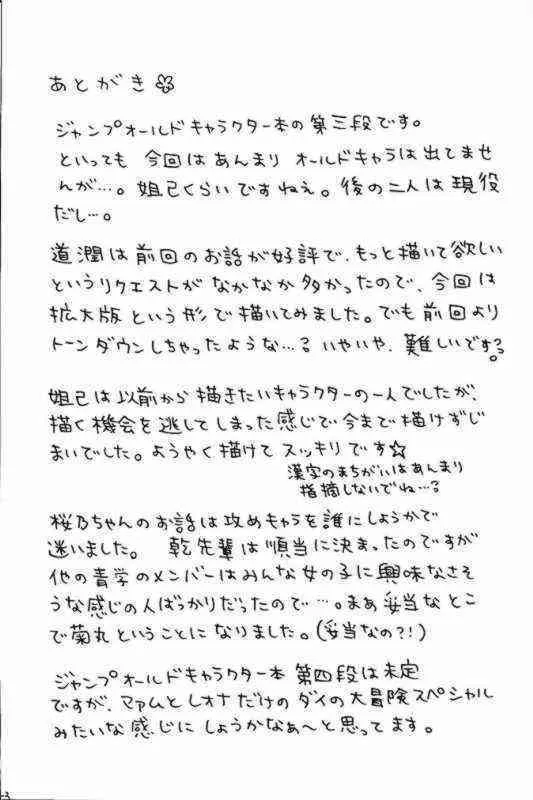 あとがき
ジャンプオールドキャラクター本の第三段です。
といっても 今回はあんまり オールドキャラは出てませ
んが…。妲己くらいですねえ。後の二人は現役
だし…。
道潤は前回のお話が好評で、もっと描いて欲しい
というリクエストが なかなか多かったので、今回は
拡大版という形で描いてみました。でも前回より
トーンダウンしちゃったような…？いやいや、難しいです？。
妲己は以前から描きたいキャラクターの一人でしたが、
描く機会を逃してしまった感じで今まで描けずじ
まいでした。ようやく描けて スッキリです☆
漢字のまちがいはあんまり
指摘しないでね…？
桜乃ちゃんのお話は攻めキャラを誰にしようかで
迷いました。 乾先輩は順当に決まったのですが
他の青学のメンバーはみんな女の子に興味なさそ
うな感じの人ばっかりだったので…。まあ妥当なとこ
で菊丸ということになりました。(妥当なの?!)
ジャンプオールドキャラクター本 第四段は未定
ですが、マァムとレオナだけのダイの大冒険スペシャル
みたいな感じにしようかなぁ〜と思ってます。